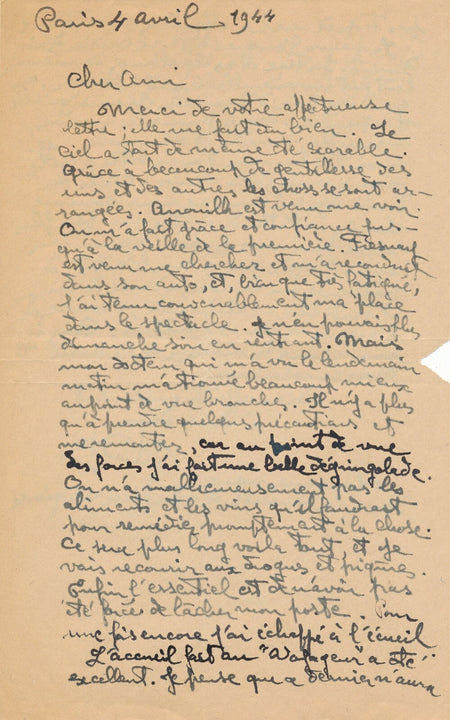 Paris 4 avril 1944
Cher Ami
Merci de votre affectueuse
lettre ; elle me fait du bien. Le
ciel a tout de même été secourable.
Grâce à beaucoup de gentillesse des
uns et des autres les choses se sont ar-
rangées. Anouilh est venu me voir.
On m'a fait grâce et confiance jus-
qu'à la veille de la première. Fresnay
est venu me chercher et m'a reconduit
dans son auto, et, bien que très fatigué,
j'ai tenu convenablement ma place
dans le spectacle. Je n'en pouvais plus
dimanche soir en rentrant. Mais
mon docteur qui m'a vu le lendemain
matin m'a trouvé beaucoup mieux
au point de vue bronches. Il n'y a plus
qu'à prendre quelques précautions et
me remonter, car au point de vue
des forces j'ai fait une belle dégringolade.
On n'a malheureusement pas les
aliments et les vins qu'il faudrait
pour remédier promptement à la chose.
Ce sera plus long voilà tout, et je
vais recourir aux drogues et piqûres.
Enfin l'essentiel est de n'avoir pas
été forcé de lâcher mon poste. Pour
une fois encore j'ai échappé à l'écueil
L'accueil fait au "Voyageur" a été
excellent. Je pense que ce dernier n'aura